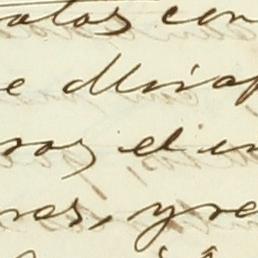 atos con
e Miraf
ros el in
res, y re